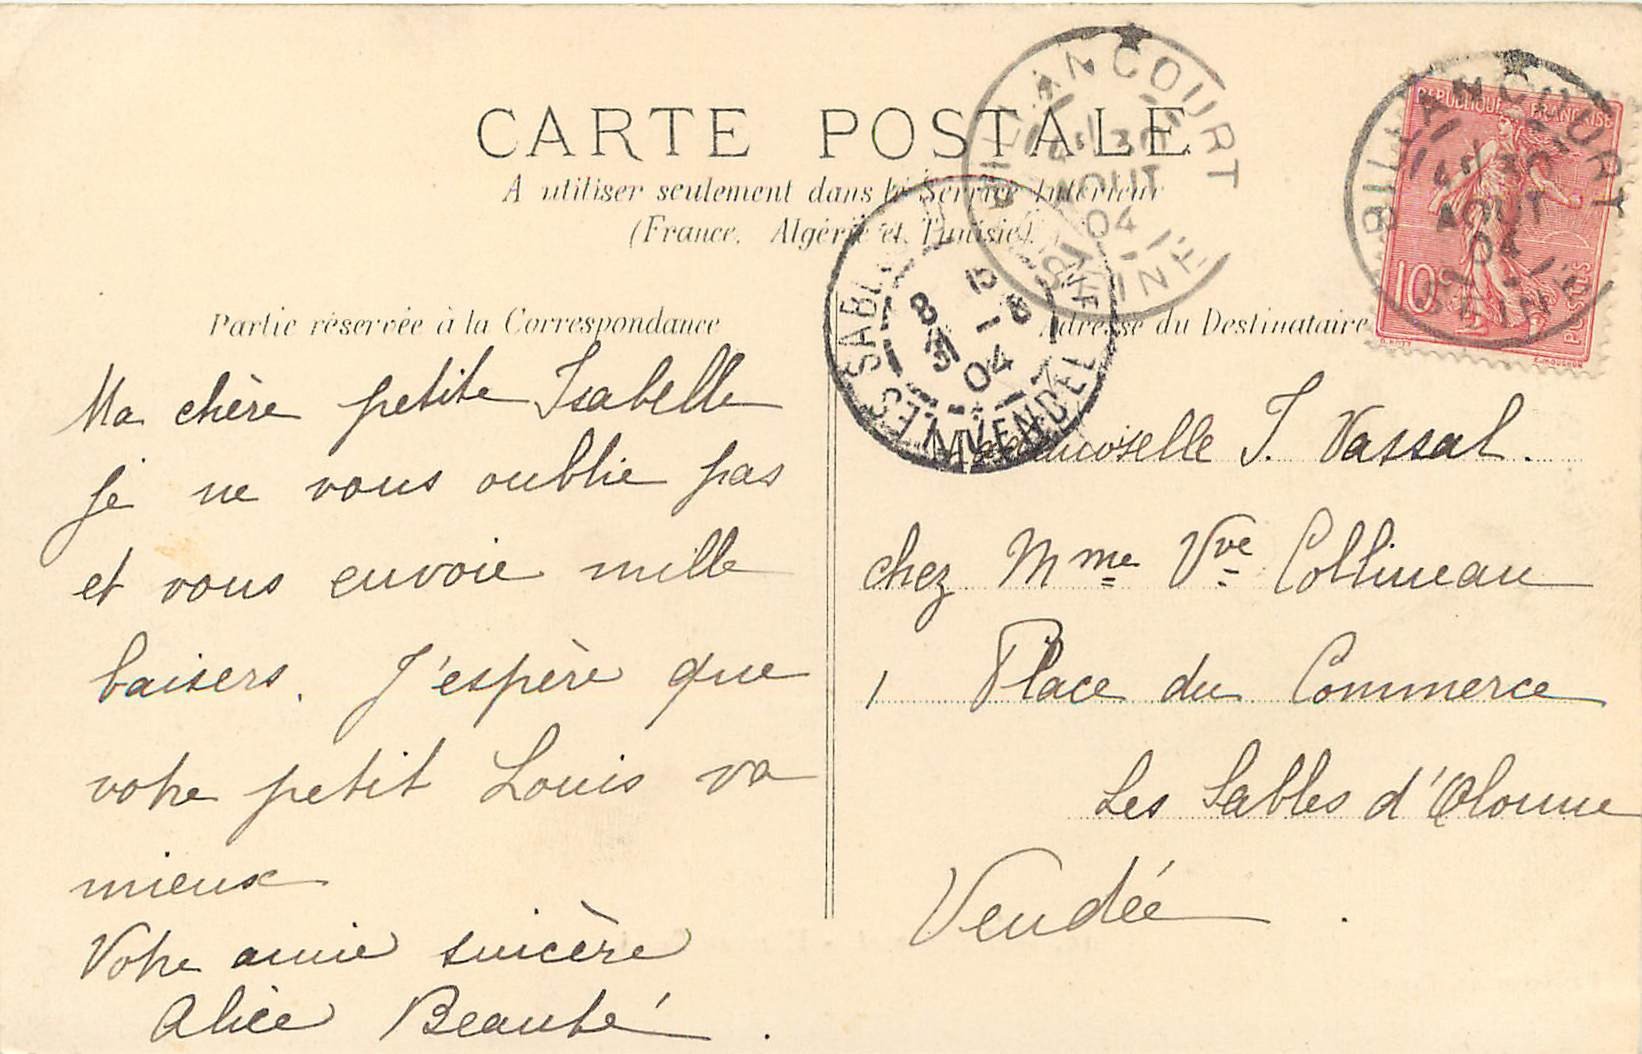 CARTE POSTALE
A utiliser seulement dans le Service Intérieur
(France, Algérie et Tunisie)
Partie réservée à la Correspondance
Ma chère petite Isabelle
je ne vous oublie pas
et vous envoie mille
baisers. J'espère que
votre petit Louis va
mieux
Votre amie sincère
Alice Beauté.
Adresse du Destinataire
Mademoiselle I. Vassal.
chez Mme Vve Collineau
1 Place du Commerce
Les Sables d'Olonne
Vendée.
BILLANCOURT
30
AOUT
04
SEINE
LES SABLES
8 31 -8
04
VENDEE
REPUBLIQUE FRANÇAISE
10
POSTES
O. ROTY
E. MOUCHON
BILLANCOURT
30
AOUT
04
SEINE